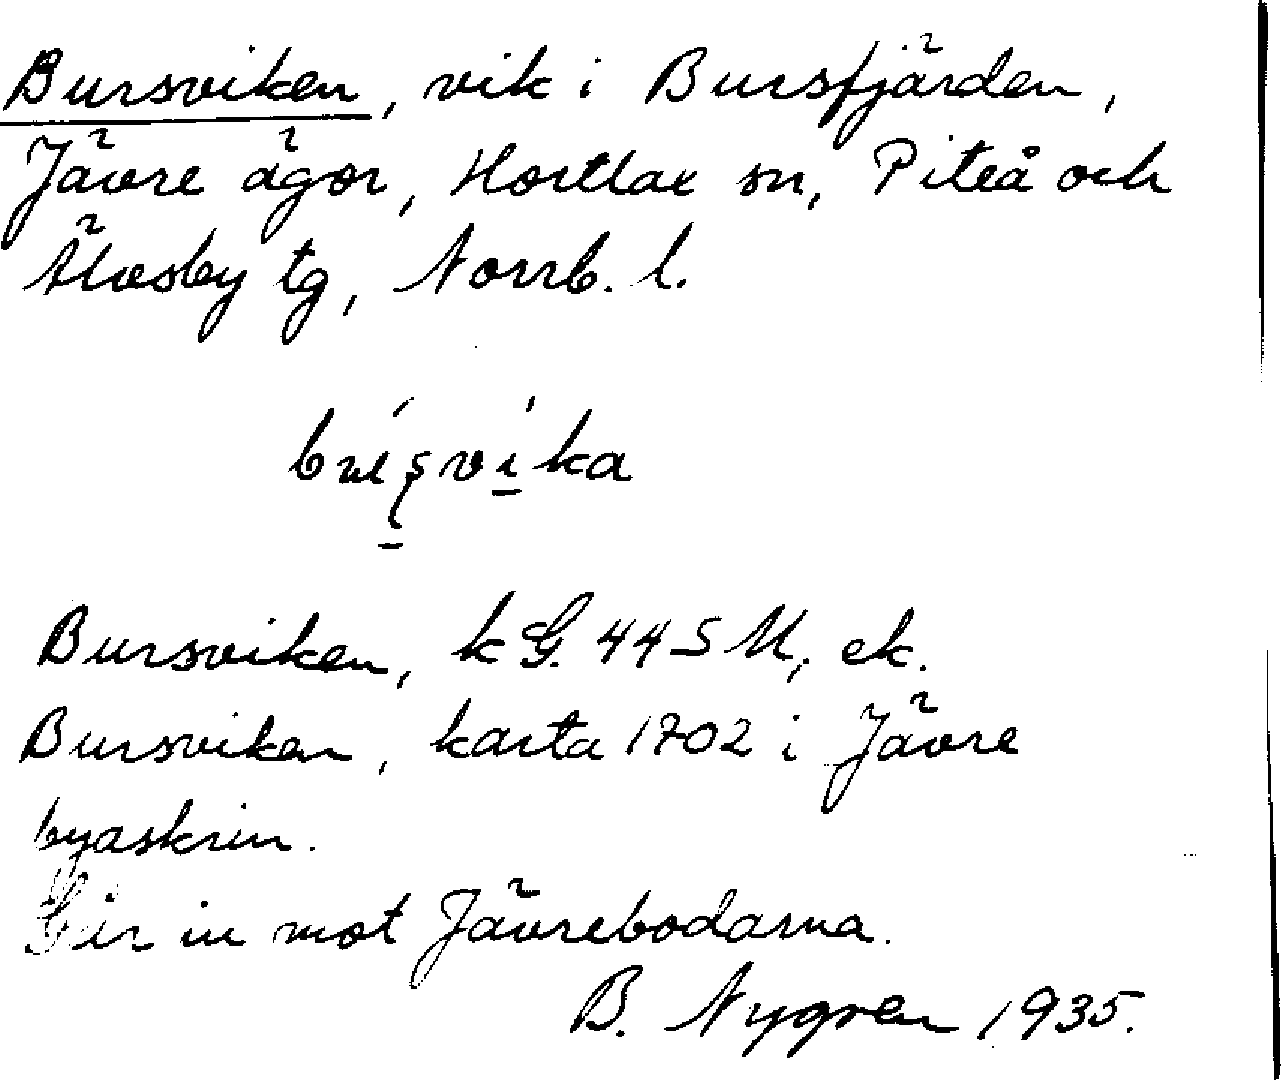 Bursviken, vik i Bursfjärden,
Jävre ägor, Hortlax sn, Piteå och
Älvsby tg, Norrb. l.
Bursviken, k G. 44 S M, ek.
Bursviken, karta 1702 i Jävre
byaskrin.
Går in mot Jävrebodarna.
B. Nygren 1935.